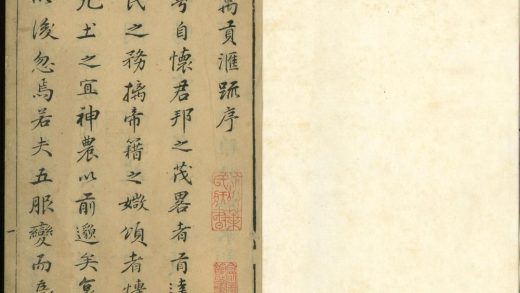 禹貢滙䟽序
自懷君邦之茂畧者首達
民之務摛帝籍之媺頌者懷
九土之宜神農以前邈矣
以後忽焉若夫五服變而